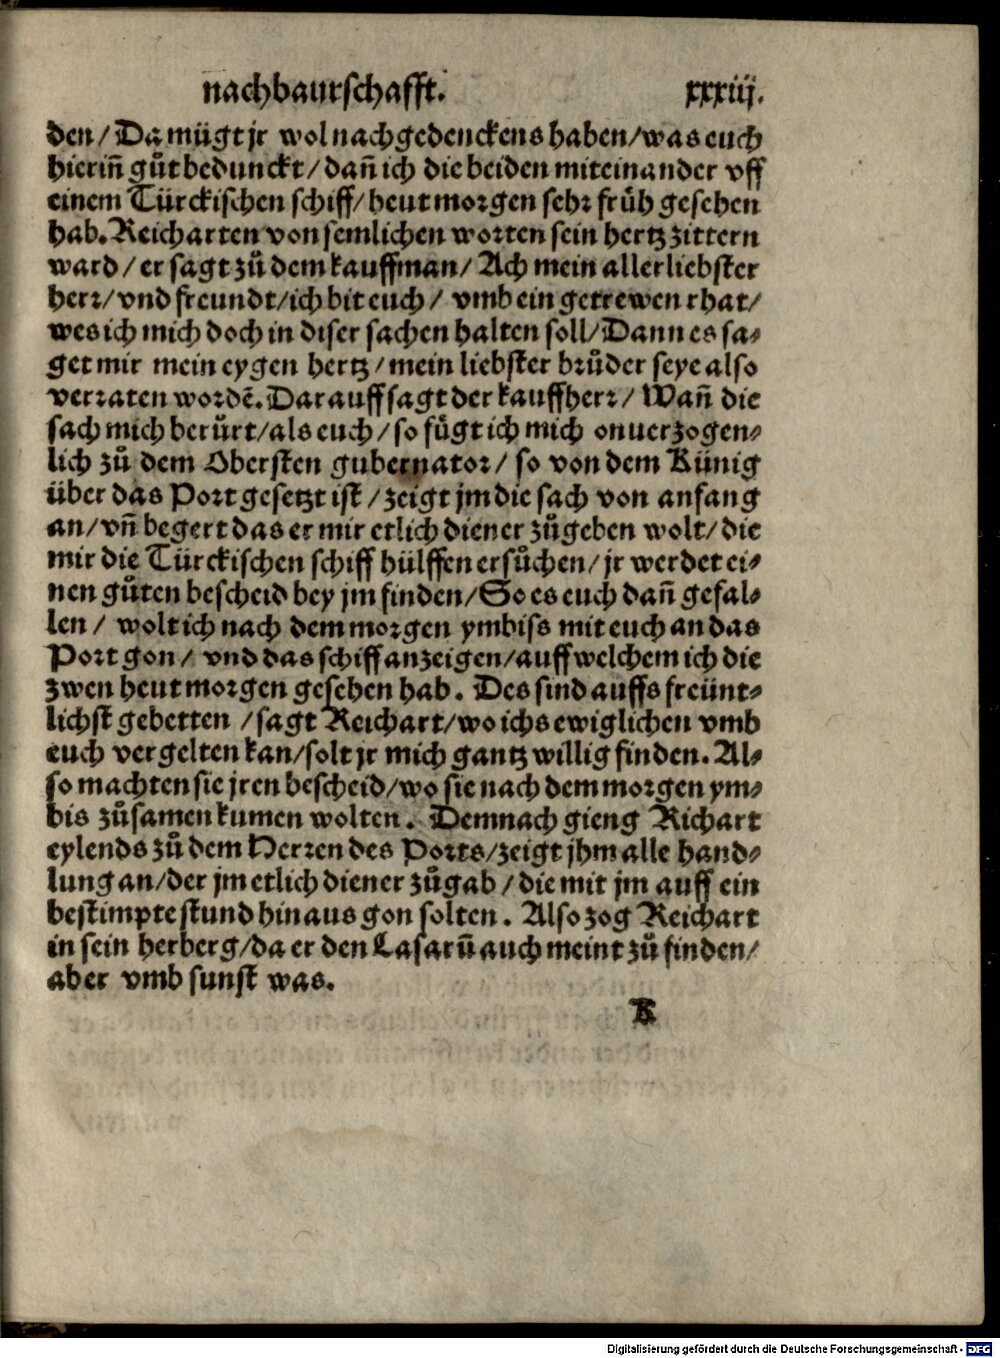 nachbaurschafft. xxxiij.
den/ Da mügt jr wol nachgedenckens haben/was euch
hieriñ gůt bedunckt/ dañ ich die beiden miteinander vff
einem Türckischen schiff/heut morgen sehr früh gesehen
hab. Reicharten von semlichen worten sein hertz zittern
ward/ er sagt zů dem kauffman/ Ach mein allerliebster
herr/vnd freundt/ich bit euch/ vmb ein getrewen rhat/
wes ich mich doch in diser sachen halten soll/Dann es sa-
get mir mein eygen hertz/mein liebster brůder seye also
verraten wordẽ. Darauff sagt der kauffherr/ Wañ die
sach mich berürt/als euch/so fügt ich mich onuerzogen-
lich zů dem Obersten gubernator/ so von dem Künig
über das Port gesetzt ist/zeigt jm die sach von anfang
an/vñ begert das er mir etlich diener zůgeben wolt/die
mir die Türckischen schiff hülffen ersůchen/jr werdet ei-
nen gůten bescheid bey jm finden/So es euch dañ gefal-
len/ wolt ich nach dem morgen ymbiss mit euch an das
Port gon/ vnd das schiff anzeigen/auff welchem ich die
zwen heut morgen gesehen hab. Des sind auffs freünt-
lichst gebetten/sagt Reichart/wo ichs ewiglichen vmb
euch vergelten kan/solt jr mich gantz willig finden. Al-
so machten sie jren bescheid/wo sie nach dem morgen ym-
bis zůsamen kumen wolten. Demnach gieng Richart
eylends zů dem Herren des Ports/zeigt jhm alle hand-
lung an/der jm etlich diener zůgab/die mit jm auff ein
bestimpte stund hinaus gon solten. Also zog Reichart
in sein herberg/da er den Lasarũ auch meint zů finden/
aber vmb sunst was.
K
Digitalisierung gefördert durch die Deutsche Forschungsgemeinschaft - DFG